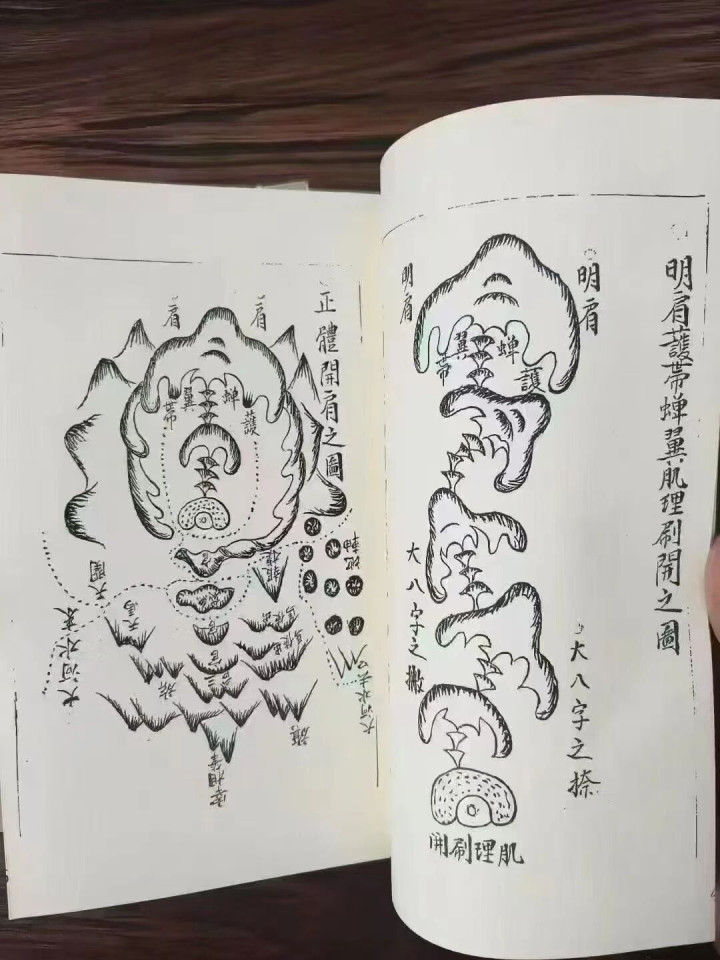 明肩護帶蟬翼肌理刷開之圖
明肩
明肩
護蟬翼帶
大八字之捺
大八字之撇
肌理刷開
正體開肩之圖
肩
肩
護蟬翼帶
地軸
天關
天馬
大河水來
大河水去
旗